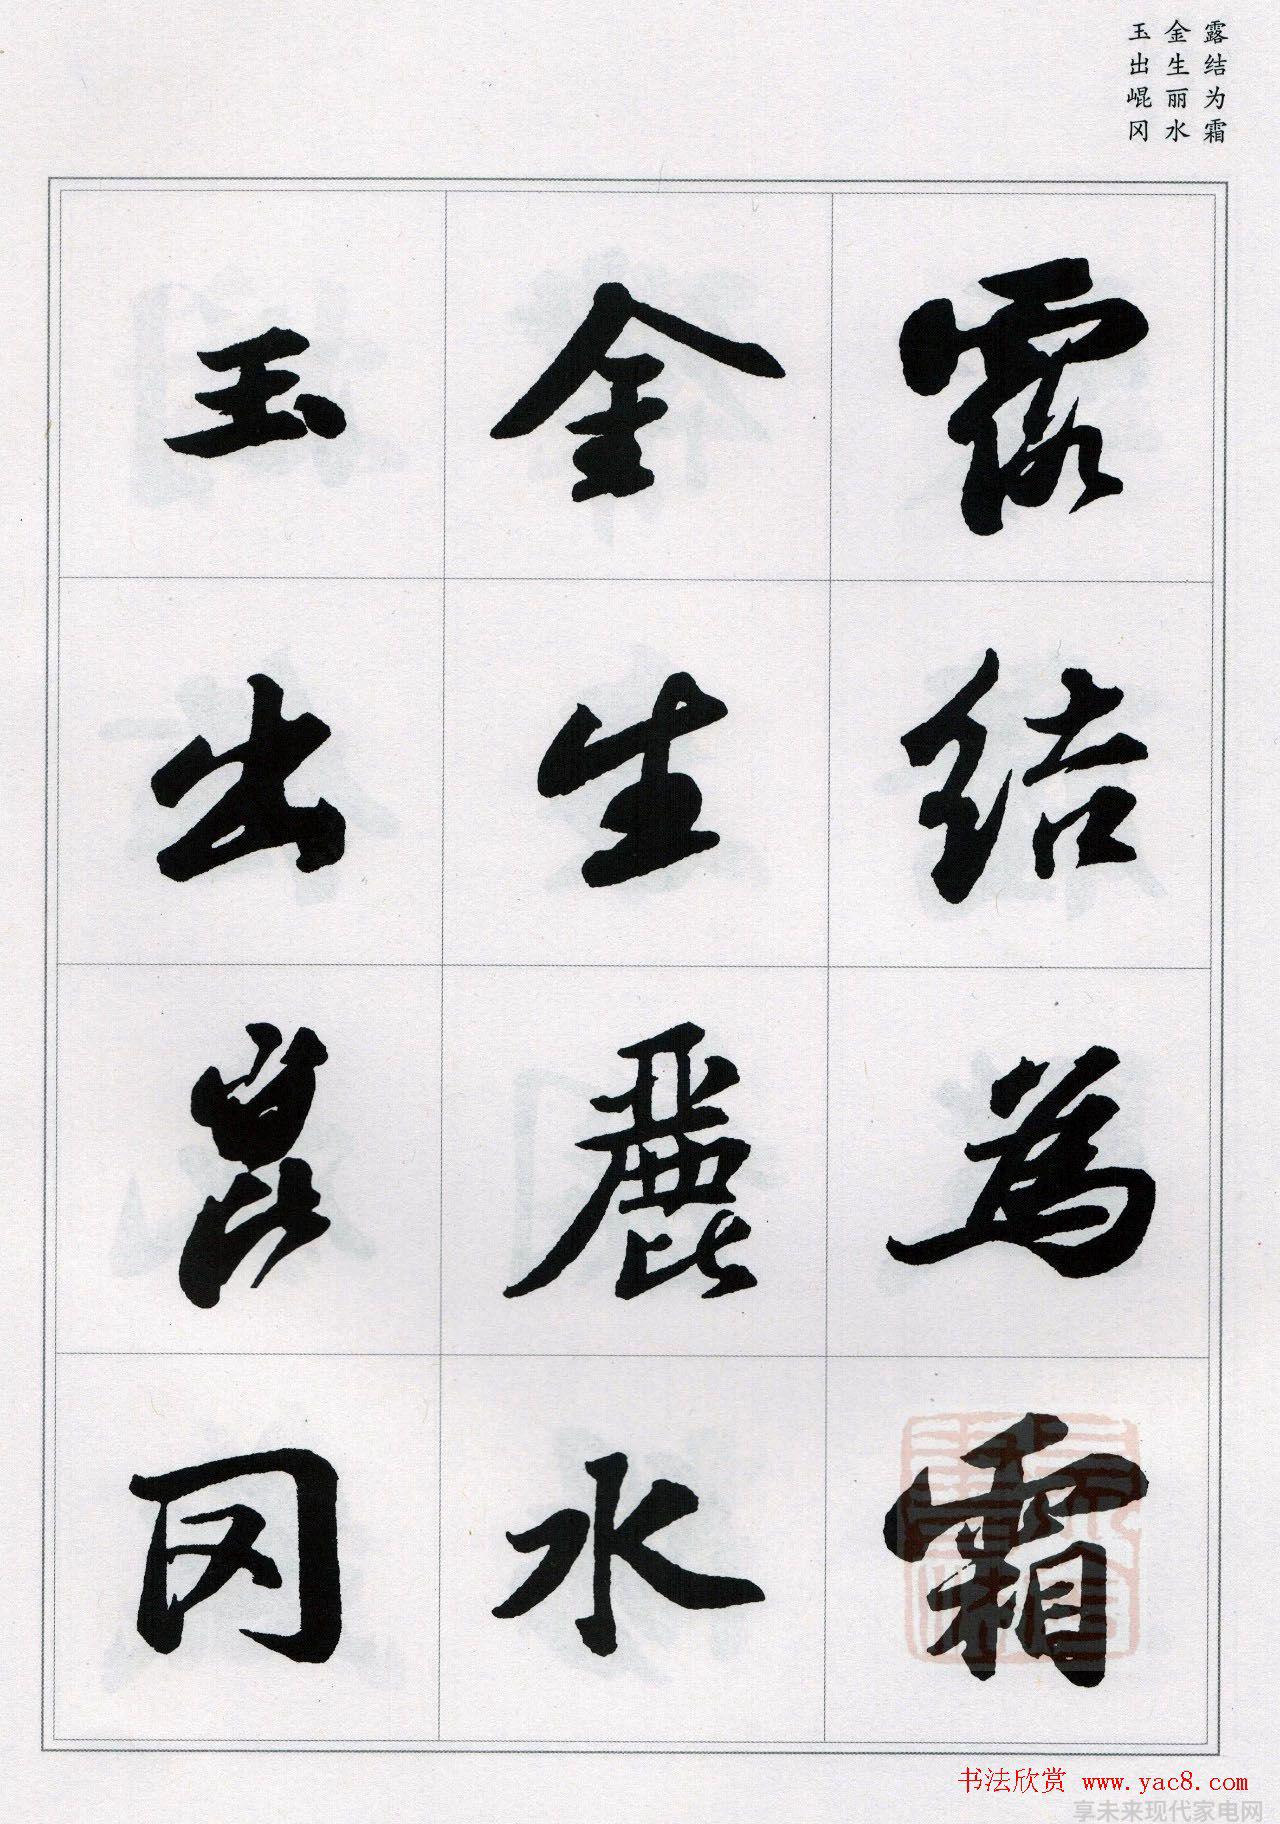 露结为霜
金生丽水
玉出崐冈
露结為霜
金生麗水
玉出崑冈
书法欣赏 www.yac8.com
享未来现代家电网